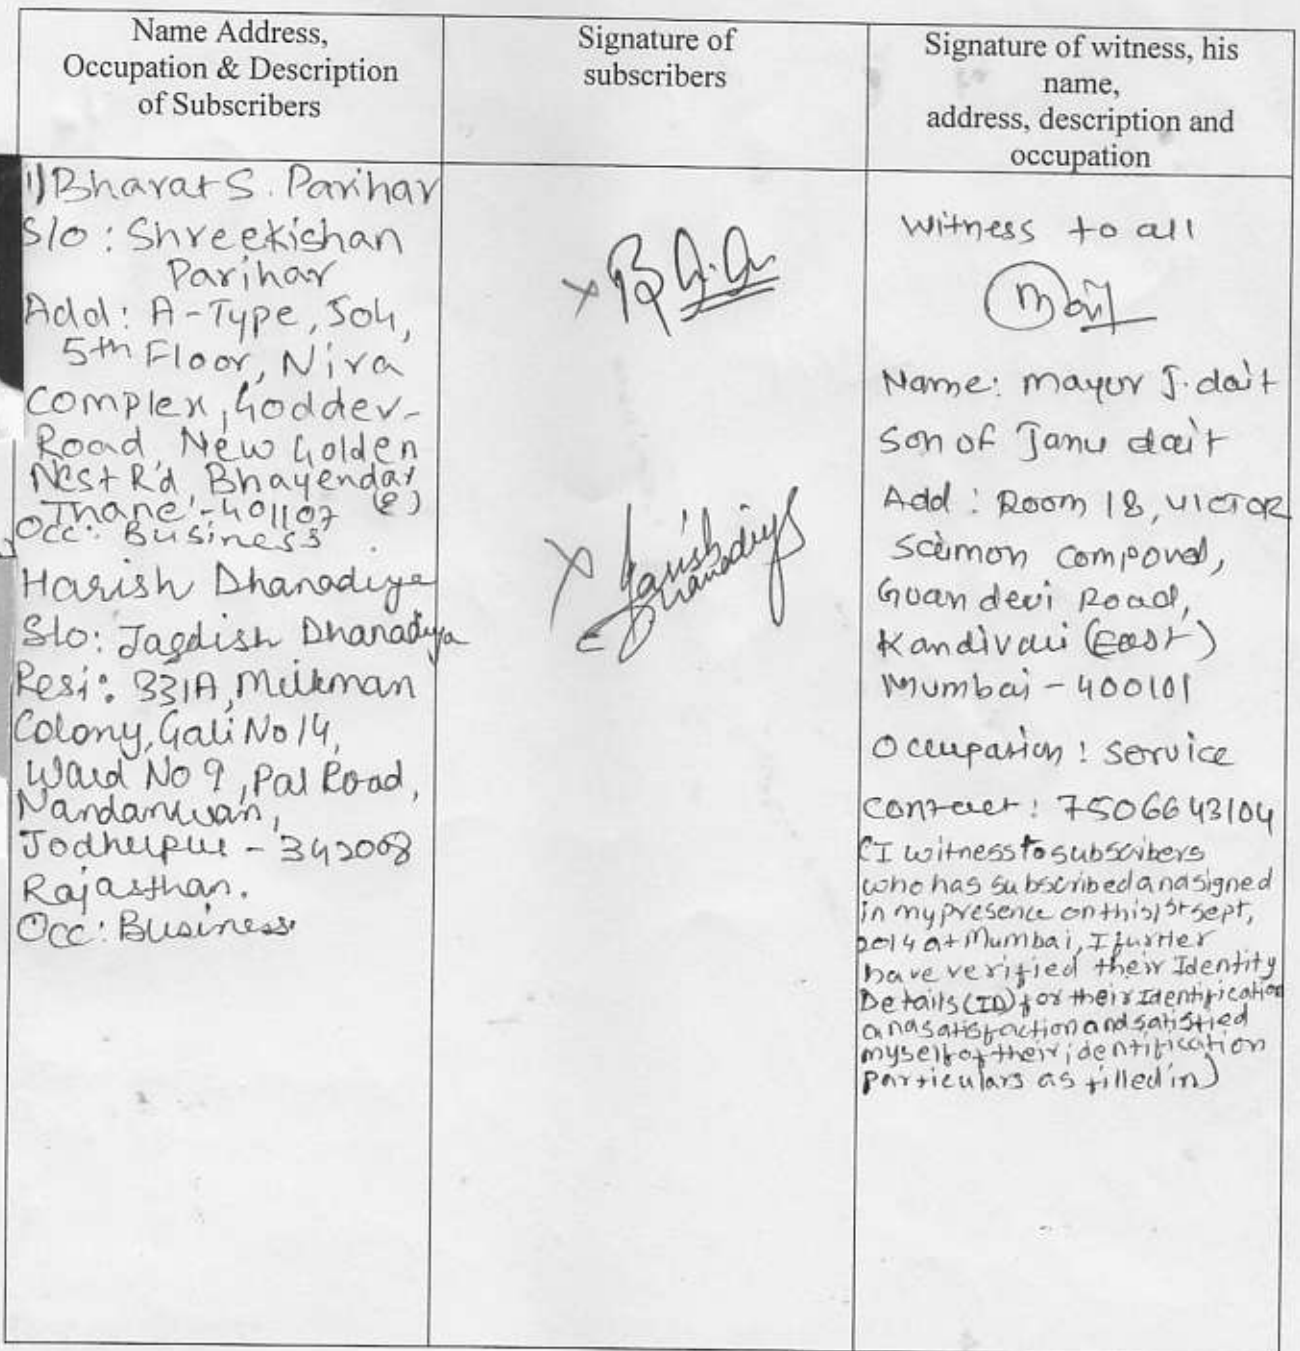 Name Address,
Occupation & Description
of Subscribers
Signature of
subscribers
Signature of witness, his
name,
address, description and
occupation
1) Bharat S. Parihar
S/o : Shreekishan
Parihar
Add: A-Type, 504,
5th Floor, Nira
Complex, Goddev-
Road, New Golden
Nest Rd, Bhayendar
Thane - 401107 (E)
Occ: Business
Harish Dhanadiya
S/o: Jagdish Dhanadiya
Resi: 331A, Milkman
Colony, Gali No 14,
Ward No 9, Pal Road,
Nandanwan,
Jodhpur - 342008
Rajasthan.
Occ: Business
x
x Harish
Dhanadiya
Witness to all
Name: mayur J. dait
Son of Janu dait
Add : Room 18, VICTOR
Compound,
Road,
Kandivali (East)
Mumbai - 400101
Occupation : service
Contact : 7506643104
(I witness to subscribers
who has subscribed and signed
in my presence on this 1st sept,
2014 at Mumbai, I further
have verified their Identity
Details (ID) for their Identification
and satisfaction and satisfied
myself of their identification
particulars as filled in)